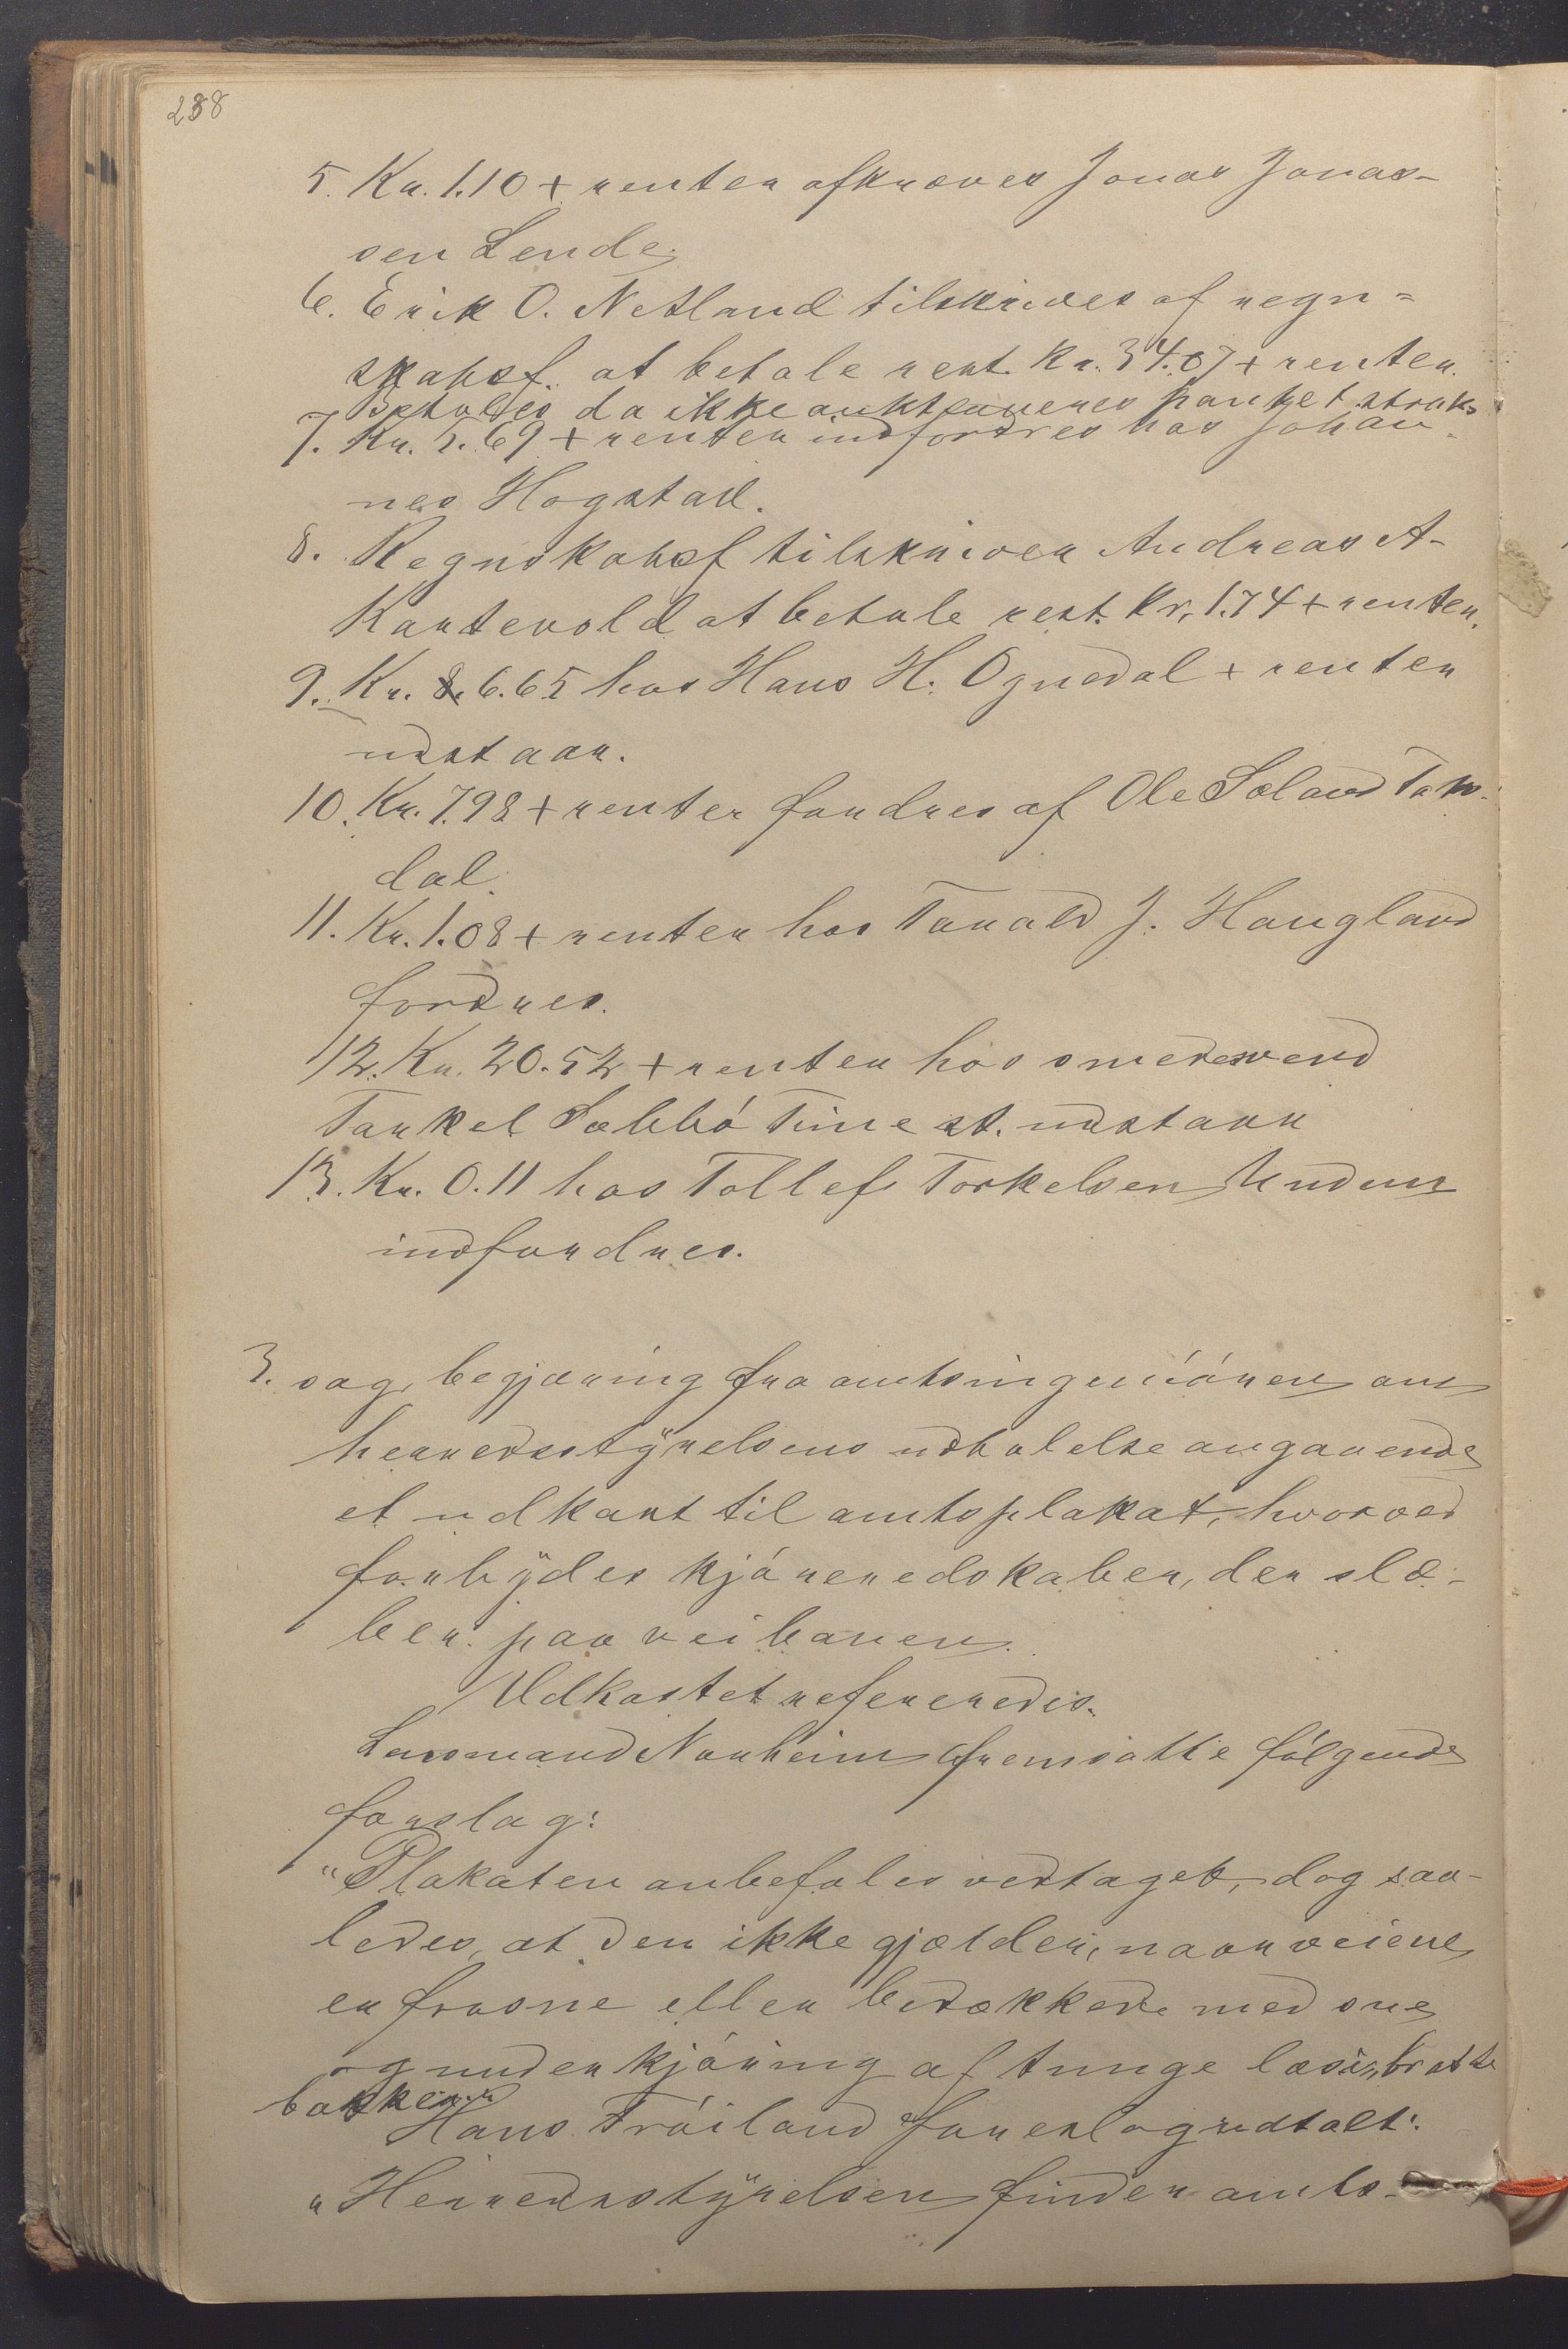 288
5. Kr. 1.10 + renter afkræves Jonas Jonas-
sen Lende.
6. Erik O. Netland tilskrives af regn=
skabsf. at betale rest. Kr. 34.07 + renter.
Betales da ikke auktioneres pantet straks
7. Kr. 5.69 + renter indfordres hos Johan-
nes Hogstad.
8. Regnskabsf tilskriver Andreas A-
Kartevold at betale rest. kr. 1.74 + renter.
9. Kr. 6.65 hos Hans H. Ognedal + renter
udstaar.
10. Kr. 7.98 + renter fordres af Ole Sæland Tom-
dal.
11. Kr. 1.08 + renter hos Tarald J. Haugland
fordres.
12. Kr. 20.52 + renter hos smedesvend
Tarkel Sælbó Time st. udstaar
13. Kr. 0.11 hos Tollef Torkelsen Undem
indfordres.
3. sag, begjæring fra amtsingenióren om
herredsstyrelsens udtalelse angaaende
et udkast til amtsplakat, hvorved
forbydes kjóreredskaber, der slæ-
ber paa veibanen.
Udkastet refereredes.
Lensmand Norheim fremsatte fólgende
forslag:
"Plakaten anbefales vedtaget, dog saa-
ledes, at den ikke gjælder, naar veiene
er frosne eller bedækkede med sne
og under kjóring af tunge læs i bratte
bakker."
Hans Tróiland foreslog udtalt:
"Herredsstyrelsen finder amts-